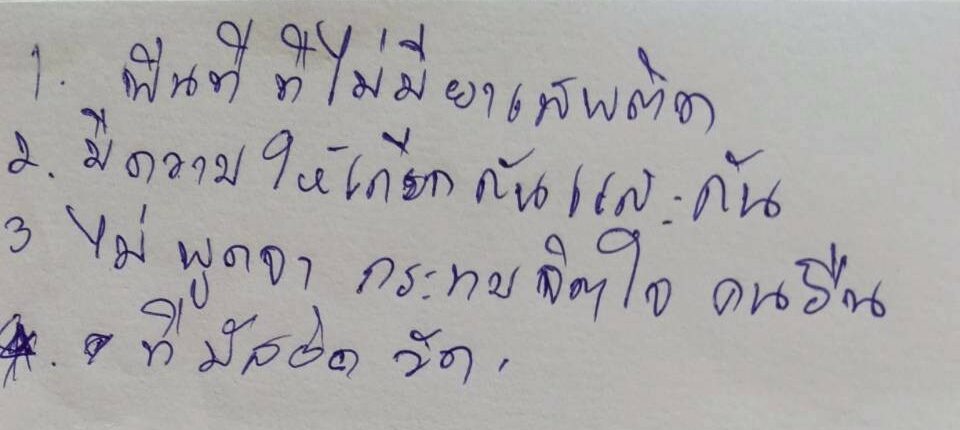 1. พื้นที่ ที่ไม่มียาเสพติด
2. มีความให้เกียรกันและกัน
3 ไม่พูดจา กระทบจิตใจ คนอื่น
4. ที่มัสยิด วัด.